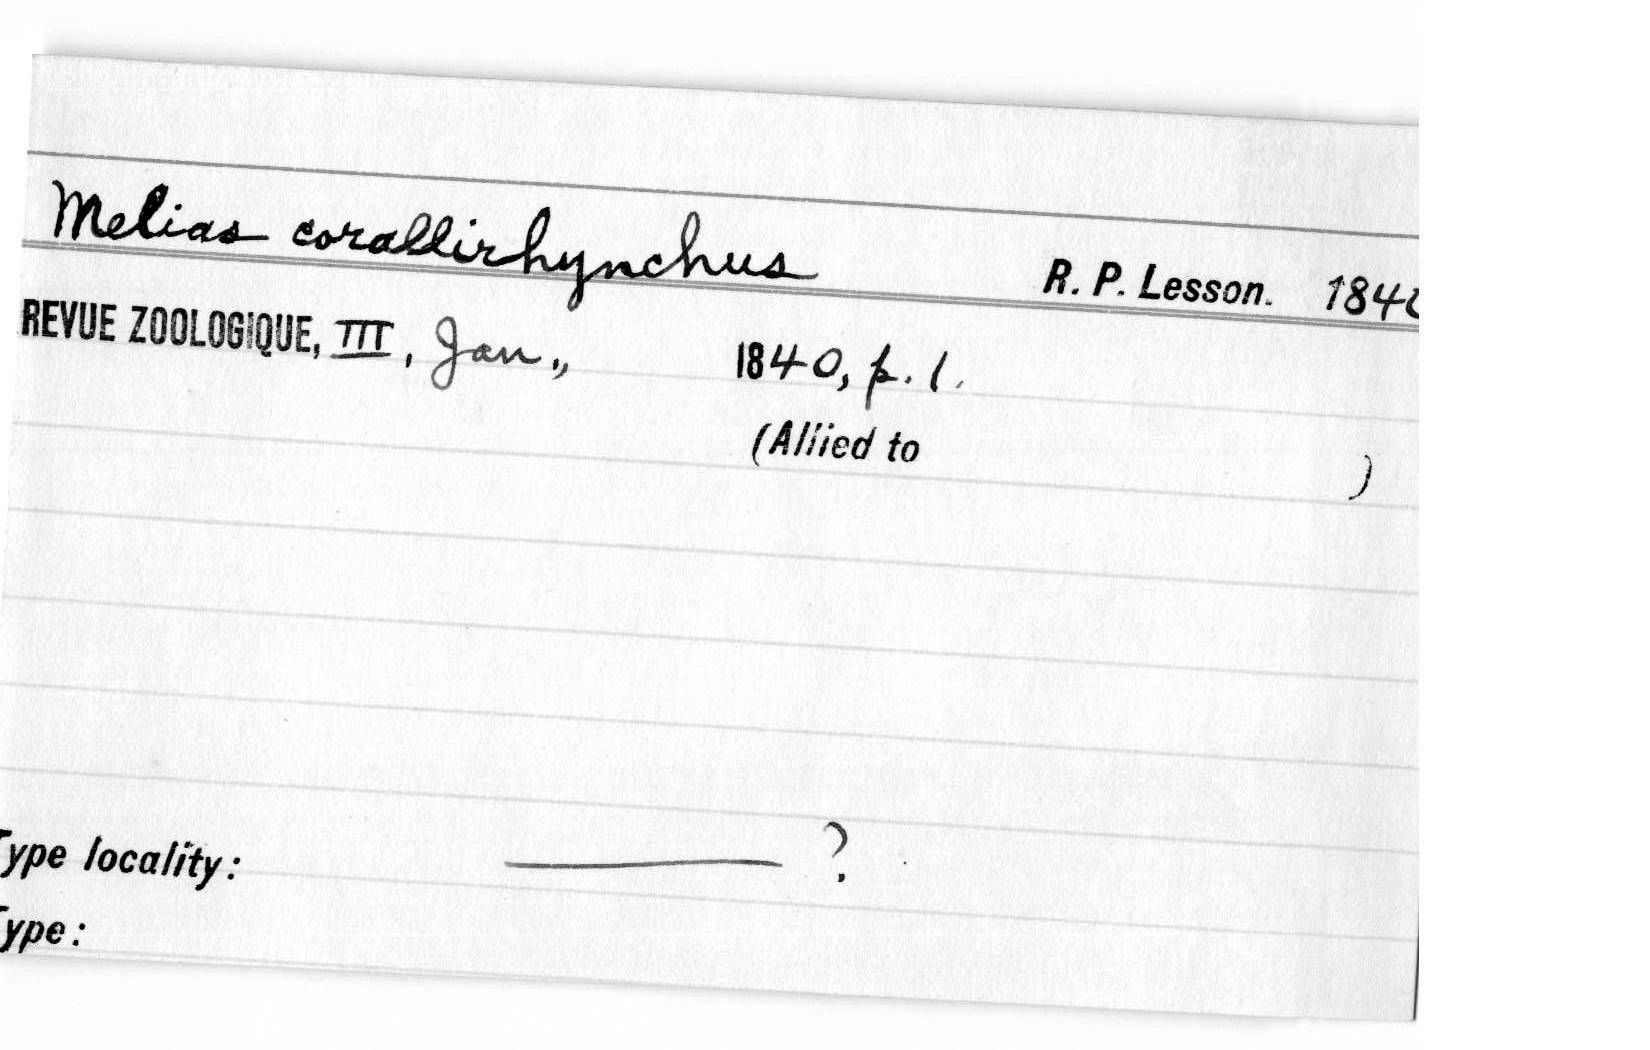 Melias corallirhynchus
R. P. Lesson. 1840
REVUE ZOOLOGIQUE, III, Jan., 1840, p. 1.
(Allied to )
Type locality: ——— ?
Type: